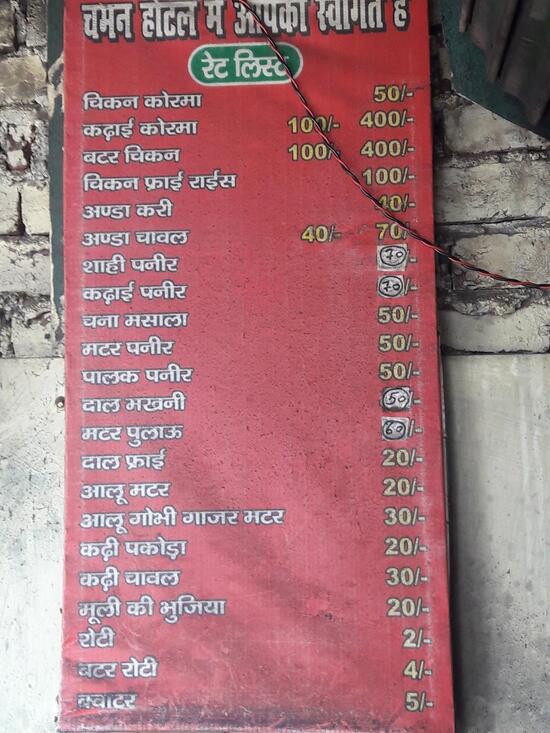 चमन होटल में आपका स्वागत है
रेट लिस्ट
चिकन कोरमा 50/-
कढ़ाई कोरमा 100/- 400/-
बटर चिकन 100/- 400/-
चिकन फ्राई राईस 100/-
अण्डा करी 40/-
अण्डा चावल 40/- 70/-
शाही पनीर 70/-
कढ़ाई पनीर 70/-
चना मसाला 50/-
मटर पनीर 50/-
पालक पनीर 50/-
दाल मखनी 50/-
मटर पुलाऊ 60/-
दाल फ्राई 20/-
आलू मटर 20/-
आलू गोभी गाजर मटर 30/-
कढ़ी पकोड़ा 20/-
कढ़ी चावल 30/-
मूली की भुजिया 20/-
रोटी 2/-
बटर रोटी 4/-
क्वाटर 5/-